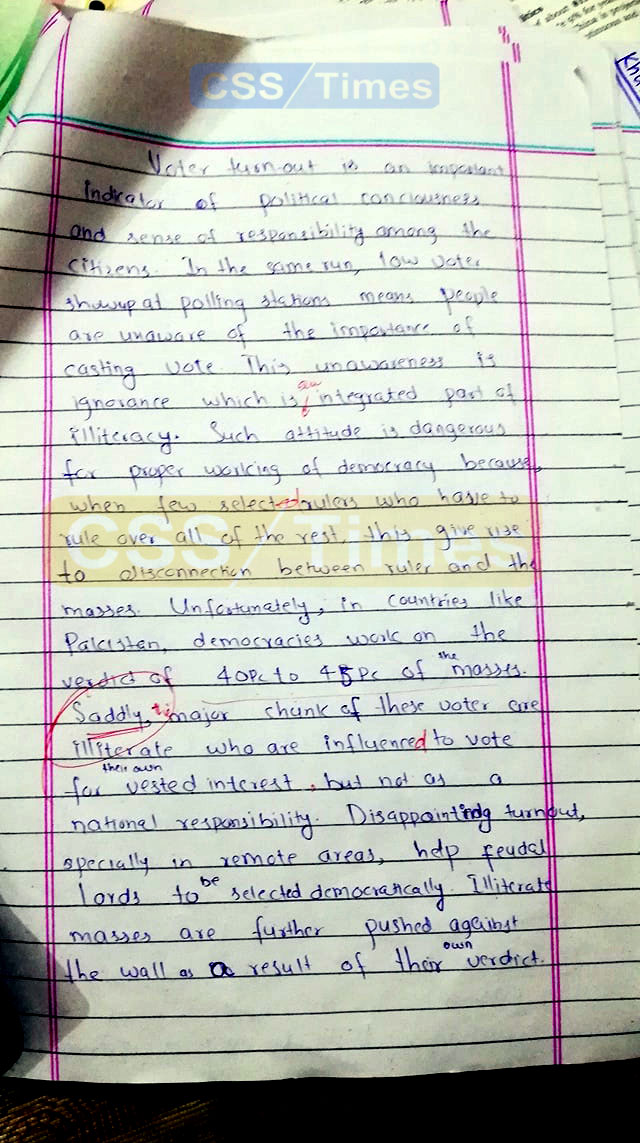 CSS/Times
Voter turn-out is an important
indicator of political conciousness
and sense of responsibility among the
citizens. In the same run, low voter
showup at polling stations means people
are unaware of the importance of
casting vote. This unawareness is
an
ignorance which is integrated part of
illiteracy. Such attitude is dangerous
for proper working of democracy because,
when few selected rulers who have to
rule over all of the rest, this give rise
CSS/Times
to disconnection between ruler and the
masses. Unfortunately, in countries like
Pakistan, democracies work on the
verdict of 40pc to 45pc of the masses.
Saddly, major chunk of these voter are
illiterate who are influenced to vote
their own
for vested interest, but not as a
national responsibility. Disappointing turnout,
specially in remote areas, help feudal
lords to be selected democratically. Illiterate
masses are further pushed against
the wall as a result of their own verdict.